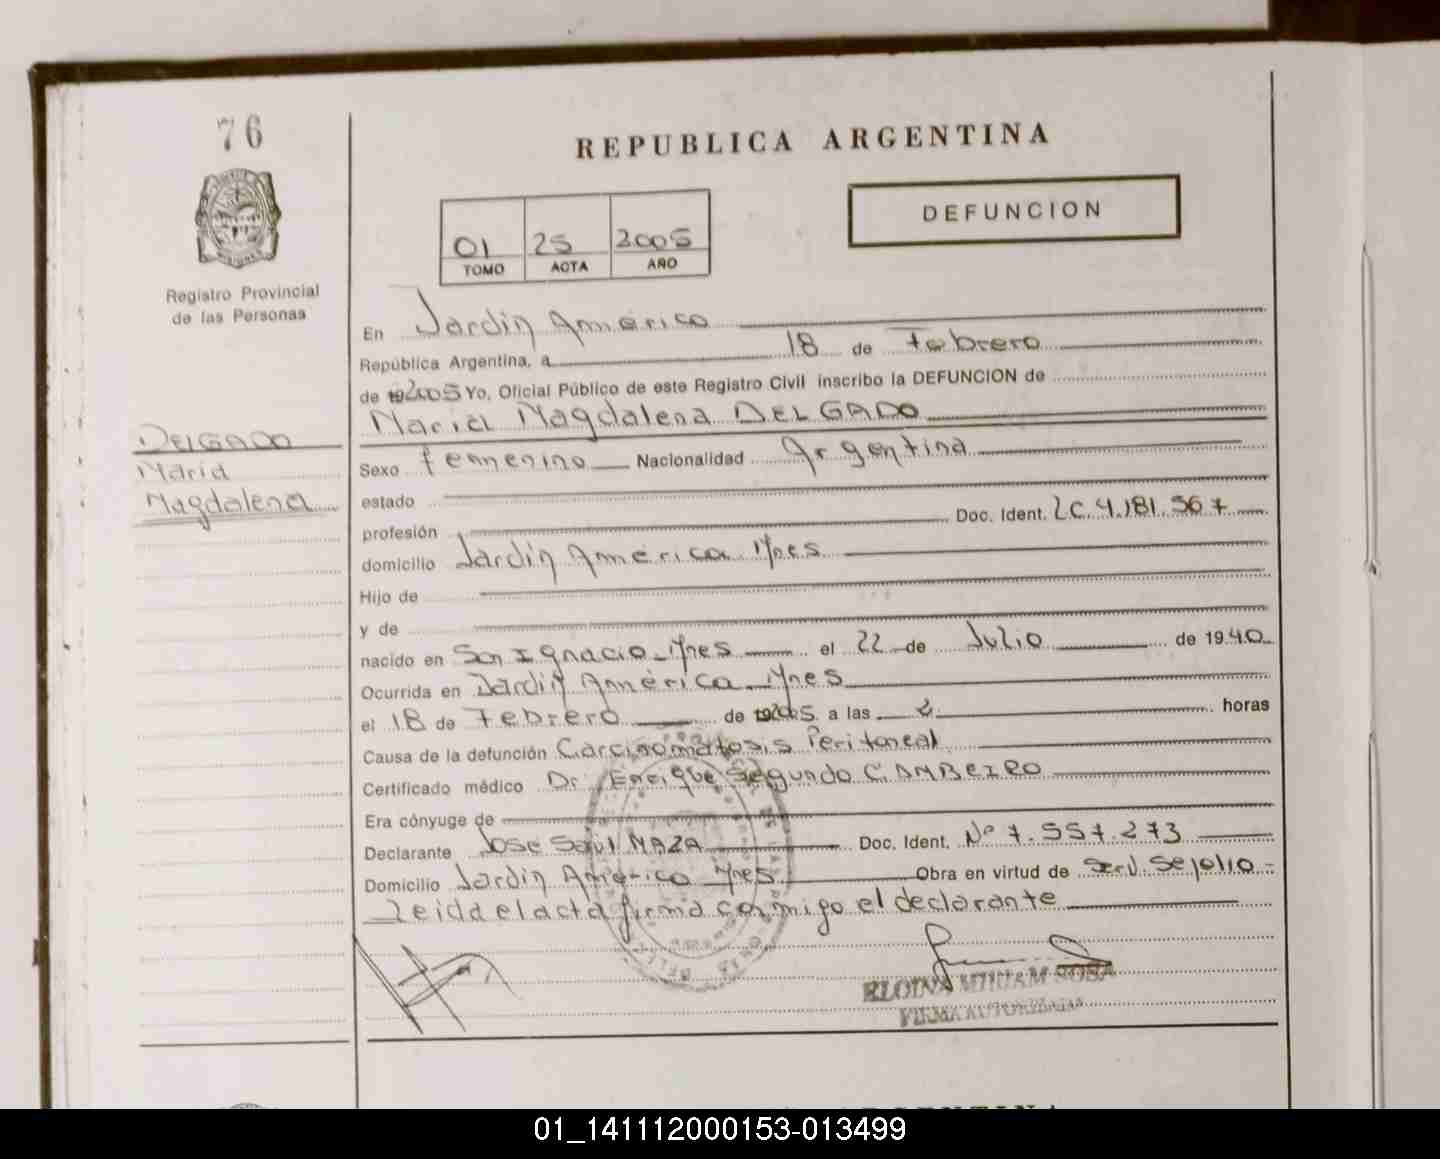 76
REPUBLICA ARGENTINA
DEFUNCION
01 25 2005
TOMO ACTA AÑO
Registro Provincial
de las Personas
En Jardin América
República Argentina, a 18 de Febrero
de 2005 Yo, Oficial Público de este Registro Civil inscribo la DEFUNCION de
Maria Magdalena DELGADO
DELGADO
Maria
Magdalena
Sexo femenino Nacionalidad Argentina
estado
profesión Doc. Ident. LC 4.181.567
domicilio Jardin América Mnes
Hijo de
y de
nacido en San Ignacio - Mnes el 22 de Julio de 1940
Ocurrida en Jardin América - Mnes
el 18 de Febrero de 2005 a las 2 horas
Causa de la defunción Carcinomatosis Peritoneal
Certificado médico Dr Enrique Segundo CAMBEIRO
Era cónyuge de
Declarante Jose Saul MAZA Doc. Ident. Nº 7.557.273
Domicilio Jardin América Mnes Obra en virtud de Serv. Sepelio -
Leida el acta firma conmigo el declarante
ELOINA MIRIAM SOSA
FIRMA AUTORIZADA
01_141112000153-013499